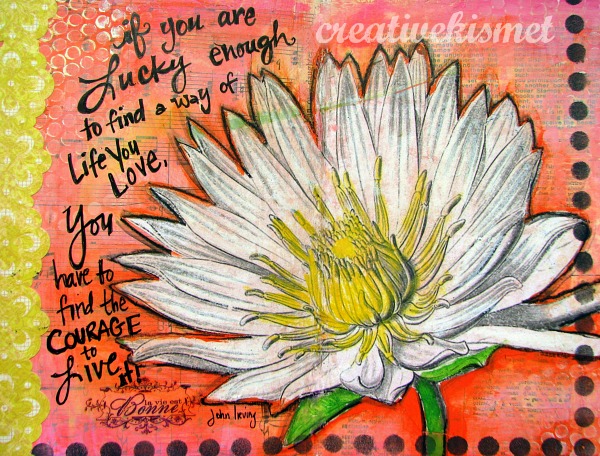 creativekismet
if you are
Lucky enough
to find a way of
Life You
LOVE,
You
have to
find the
COURAGE
to
LIVE it!
la vie est
Bonne
John Irving